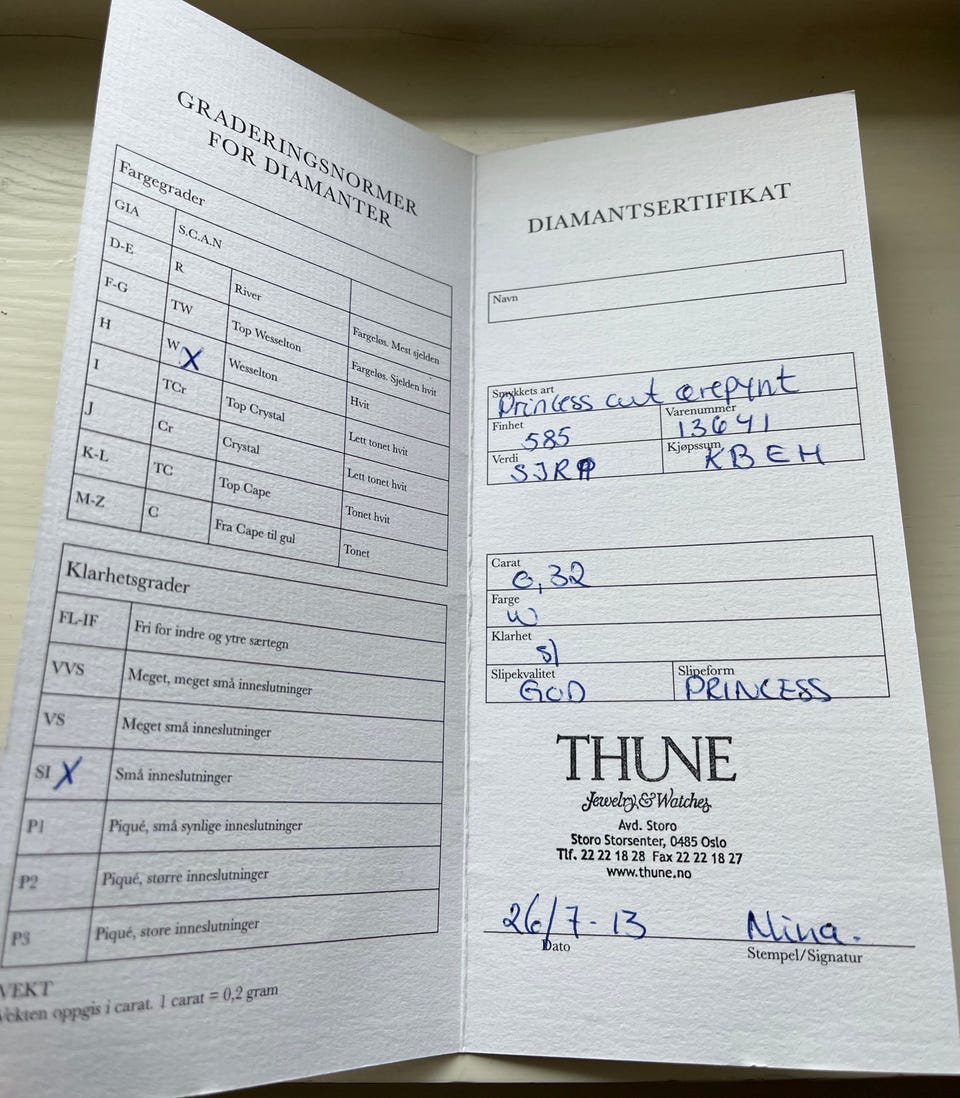 GRADERINGSNORMER
FOR DIAMANTER
Fargegrader
GIA S.C.A.N
D-E R River Fargeløs. Mest sjelden
F-G TW Top Wesselton Fargeløs. Sjelden hvit
H W X Wesselton Hvit
I TCr Top Crystal Lett tonet hvit
J Cr Crystal Lett tonet hvit
K-L TC Top Cape Tonet hvit
M-Z C Fra Cape til gul Tonet
Klarhetsgrader
FL-IF Fri for indre og ytre særtegn
VVS Meget, meget små inneslutninger
VS Meget små inneslutninger
SI X Små inneslutninger
P1 Piqué, små synlige inneslutninger
P2 Piqué, større inneslutninger
P3 Piqué, store inneslutninger
VEKT
Vekten oppgis i carat. 1 carat = 0,2 gram
DIAMANTSERTIFIKAT
Navn
Smykkets art
Princess cut ørepynt
Finhet 585 Varenummer 13641
Verdi Kjøpssum KBEH
Carat 0,32
Farge W
Klarhet SI
Slipekvalitet GOD Slipeform PRINCESS
THUNE
Jewelry & Watches
Avd. Storo
Storo Storsenter, 0485 Oslo
Tlf. 22 22 18 28 Fax 22 22 18 27
www.thune.no
26/7-13 Nina.
Dato Stempel/Signatur